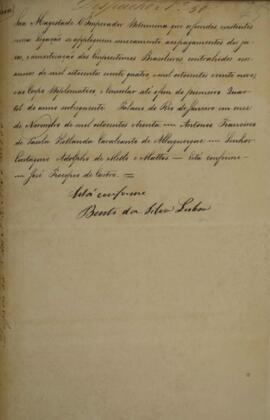 Despacho N. 50
Sua Magestade O Imperador Determina que os fundos existentes
nessa Legação se appliquem unicamente aos pagamentos dos ju-
ros, e amortisação dos Emprestimos Brasileiros contrahidos no
anno de mil oitocentos vinte quatro, e mil oitocentos vinte nove,
e ao Corpo Diplomatico e Consular até o fim do primeiro Quar-
tel do anno subsequente. Palacio do Rio de Janeiro em onze
de Novembro de mil oitocentos e trinta — Antonio Francisco
de Paula Hollanda Cavalcante de Albuquerque — Senhor
Eustaquio Adolpho de Mello e Mattos — Está conforme
— José Procopio de Castro.
Está conforme
Bento da Silva Lisboa